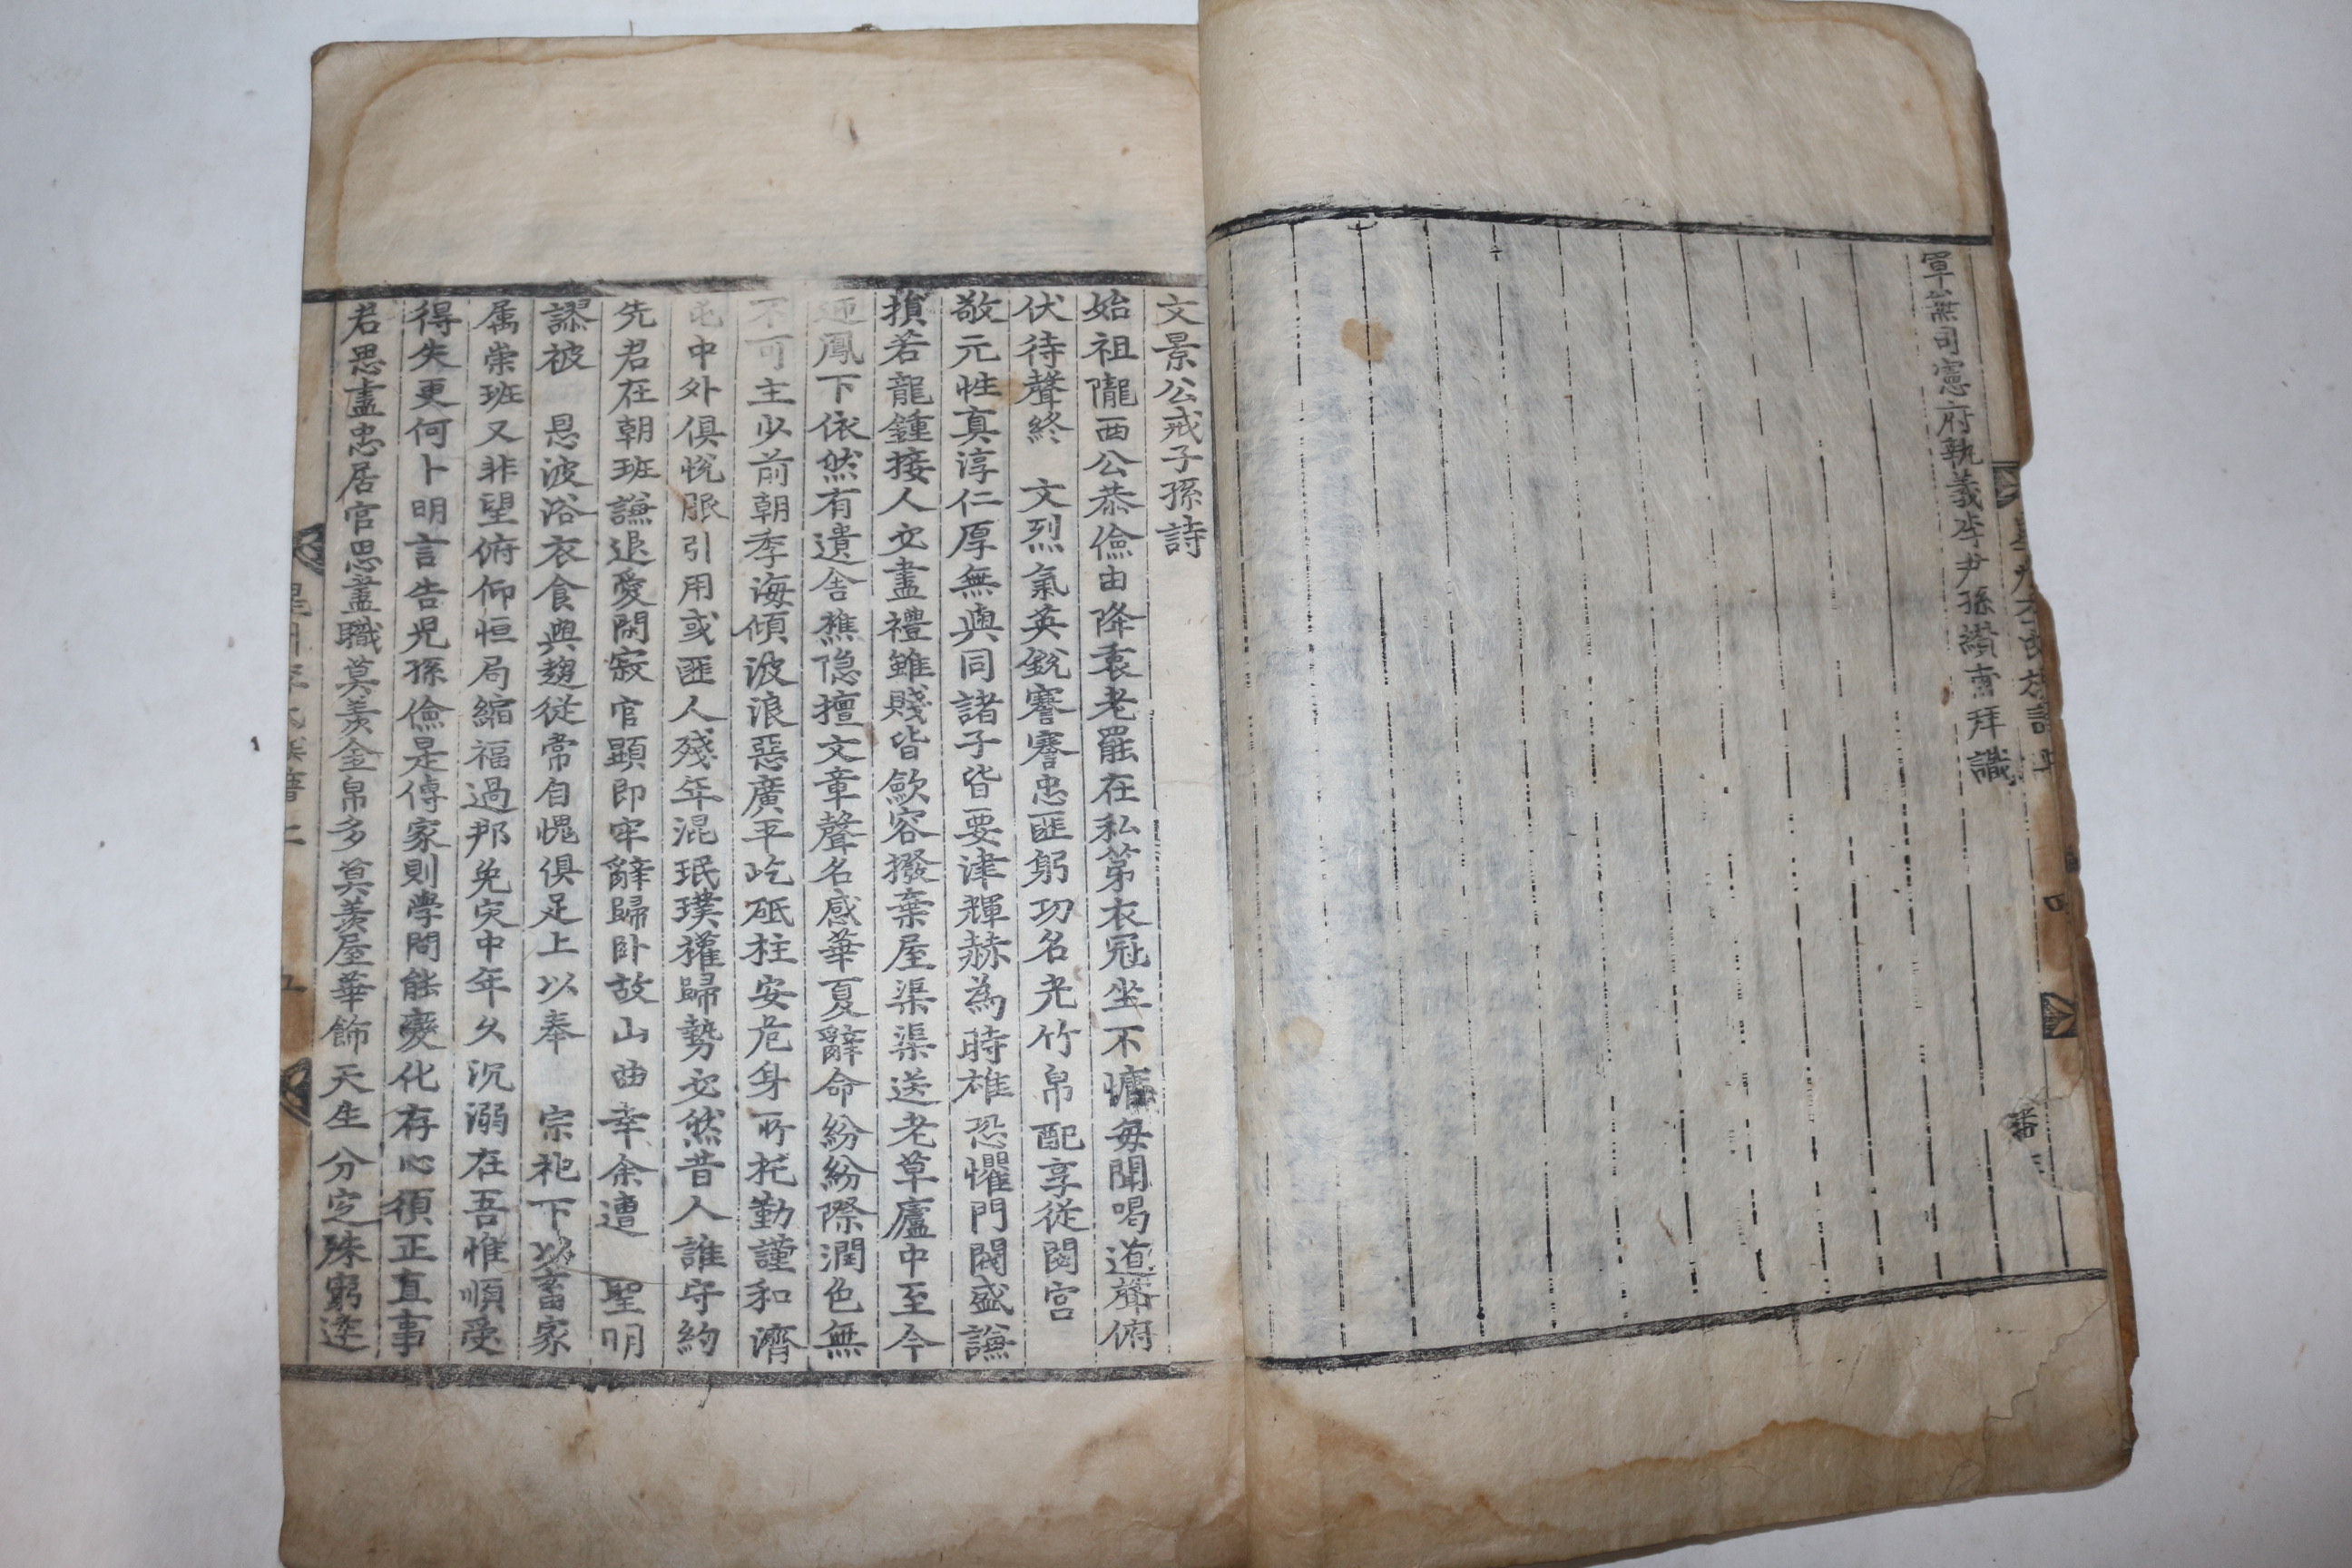 軍兼司憲府執義李尹孫績書拜識
文景公戒子孫詩
始祖隴西公恭儉由降衷老罷在私第衣冠坐不慵每聞喝道聲俯
伏待聲終　文烈氣英銳謇謇忠匪躬功名光竹帛配享從閟宮
敬元性真淳仁厚無與同諸子皆要津輝赫為時雄恐懼門閥盛謙
損若龍鍾接人必盡禮雖賤皆斂容撥棄屋渠渠送老草廬中至今
迊鳳下依然有遺舍樵隱擅文章聲名感華夏辭命紛紛際潤色無
不可主少前朝季海傾波浪惡廣平屹砥柱安危身所托勤謹和濟
中外俱悅服引用或匪人殘年混珉璞權歸勢必然昔人誰守約
先君在朝班謙退愛閑寂官顯即牢辭歸臥故山曲幸余遭　聖明
謬被　恩波浴衣食與趨從常自愧俱足上以奉　宗祀下以畜家
屬崇班又非望俯仰恒局縮福過那免灾中年久沉溺在吾惟順受
得失更何卜明言告兒孫儉是傳家則學問能變化存心須正直事
君思盡忠居官思盡職莫羨金帛多莫羨屋華飾天生分定殊窮達